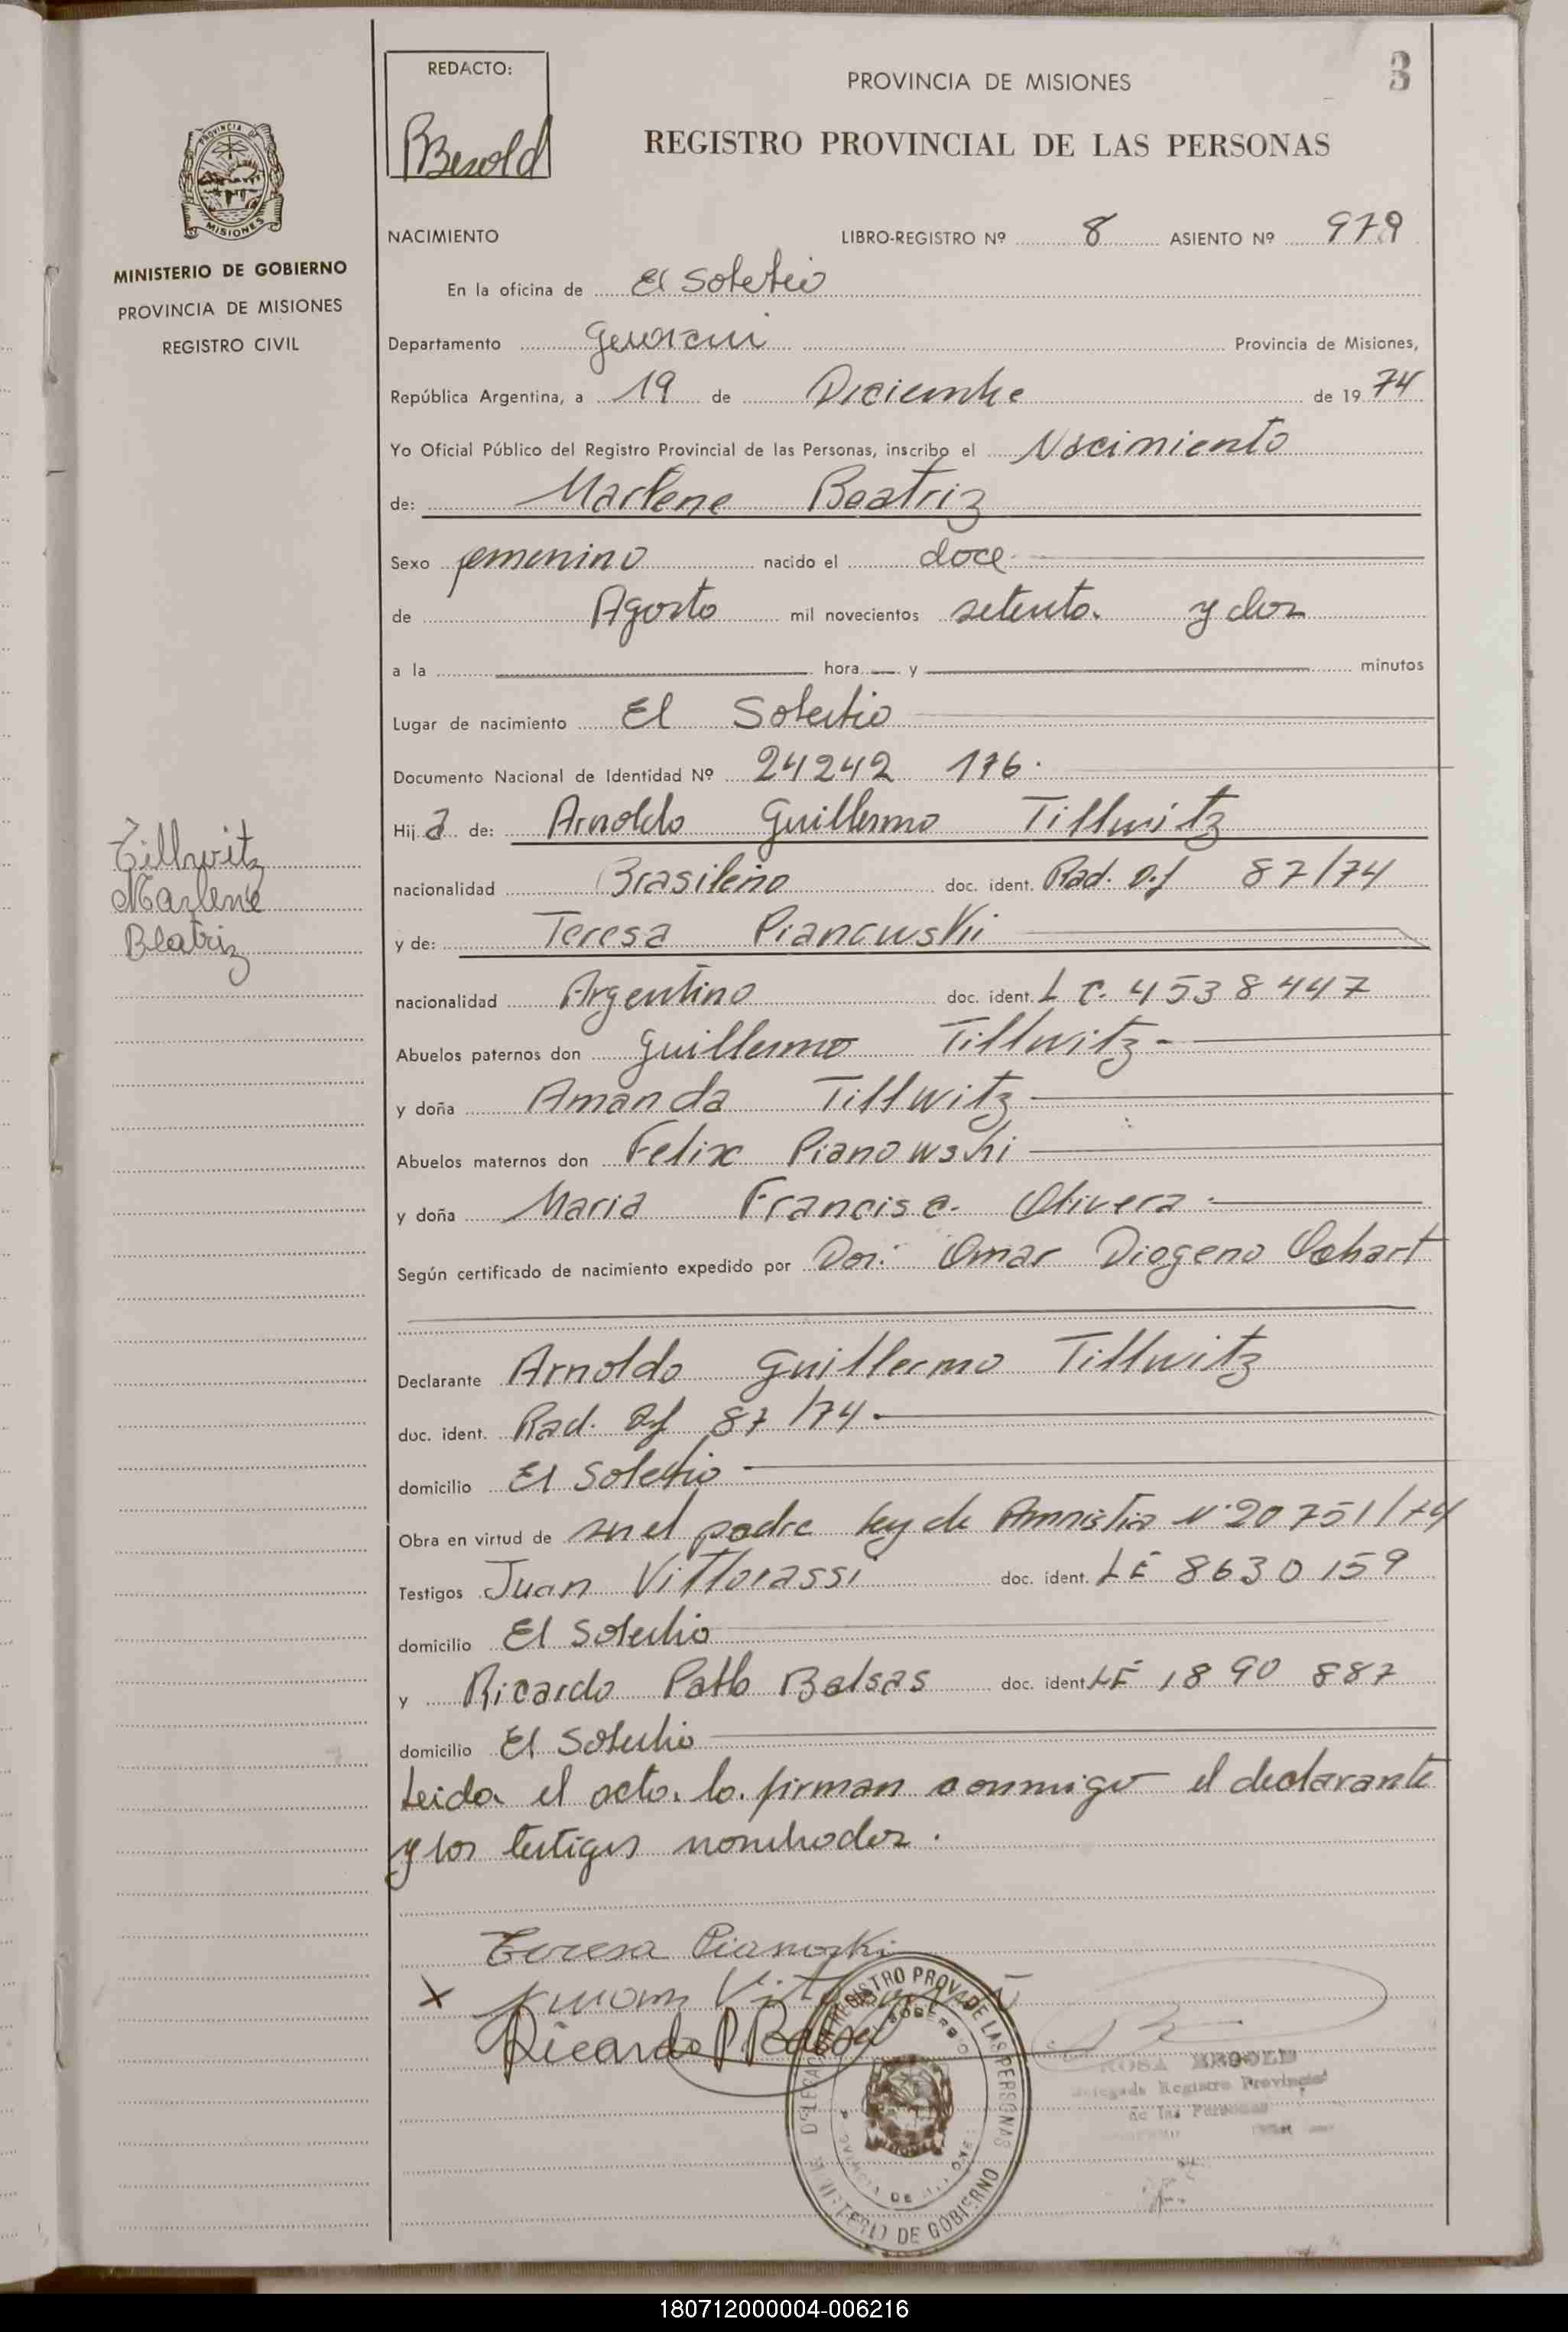 REDACTO:
BBesold
PROVINCIA DE MISIONES
3
REGISTRO PROVINCIAL DE LAS PERSONAS
PROVINCIA DE
MISIONES
MINISTERIO DE GOBIERNO
PROVINCIA DE MISIONES
REGISTRO CIVIL
NACIMIENTO LIBRO-REGISTRO Nº 8 ASIENTO Nº 979
En la oficina de El Soberbio
Departamento Guarani Provincia de Misiones,
República Argentina, a 19 de Diciembre de 19 74
Yo Oficial Público del Registro Provincial de las Personas, inscribo el Nacimiento
de: Marlene Beatriz
Sexo femenino nacido el doce
de Agosto mil novecientos setenta y dos
a la hora y minutos
Lugar de nacimiento El Soberbio
Documento Nacional de Identidad Nº 24242 176.
Hij a de: Arnoldo Guillermo Tillwitz
nacionalidad Brasileño doc. ident. Rad. Of 87/74
y de: Teresa Pianowski
nacionalidad Argentina doc. ident. L C. 4538447
Abuelos paternos don Guillermo Tillwitz
y doña Amanda Tillwitz
Abuelos maternos don Felix Pianowski
y doña Maria Francisc. Olivera
Según certificado de nacimiento expedido por Dor: Omar Diogeno Ochart
Declarante Arnoldo Guillermo Tillwitz
doc. ident. Rad. Of 87/74
domicilio El Soberbio
Obra en virtud de ser el padre Ley de Amnistia Nº 20751/74
Testigos Juan Vittorassi doc. ident. LE 8630159
domicilio El Soberbio
y Ricardo Pablo Balsas doc. ident. LE 1890 887
domicilio El Soberbio
Leida el acta, la firman conmigo el declarante
y los testigos nombrados.
Tillwitz
Marlene
Beatriz
Teresa Pianoski
X Juan
Ricardo P Balsa
REGISTRO PROV. DE LAS PERSONAS
SOBERBIO
MINISTERIO DE GOBIERNO
ROSA BESOLD
Delegada Registro Provincial
de las Personas
180712000004-006216